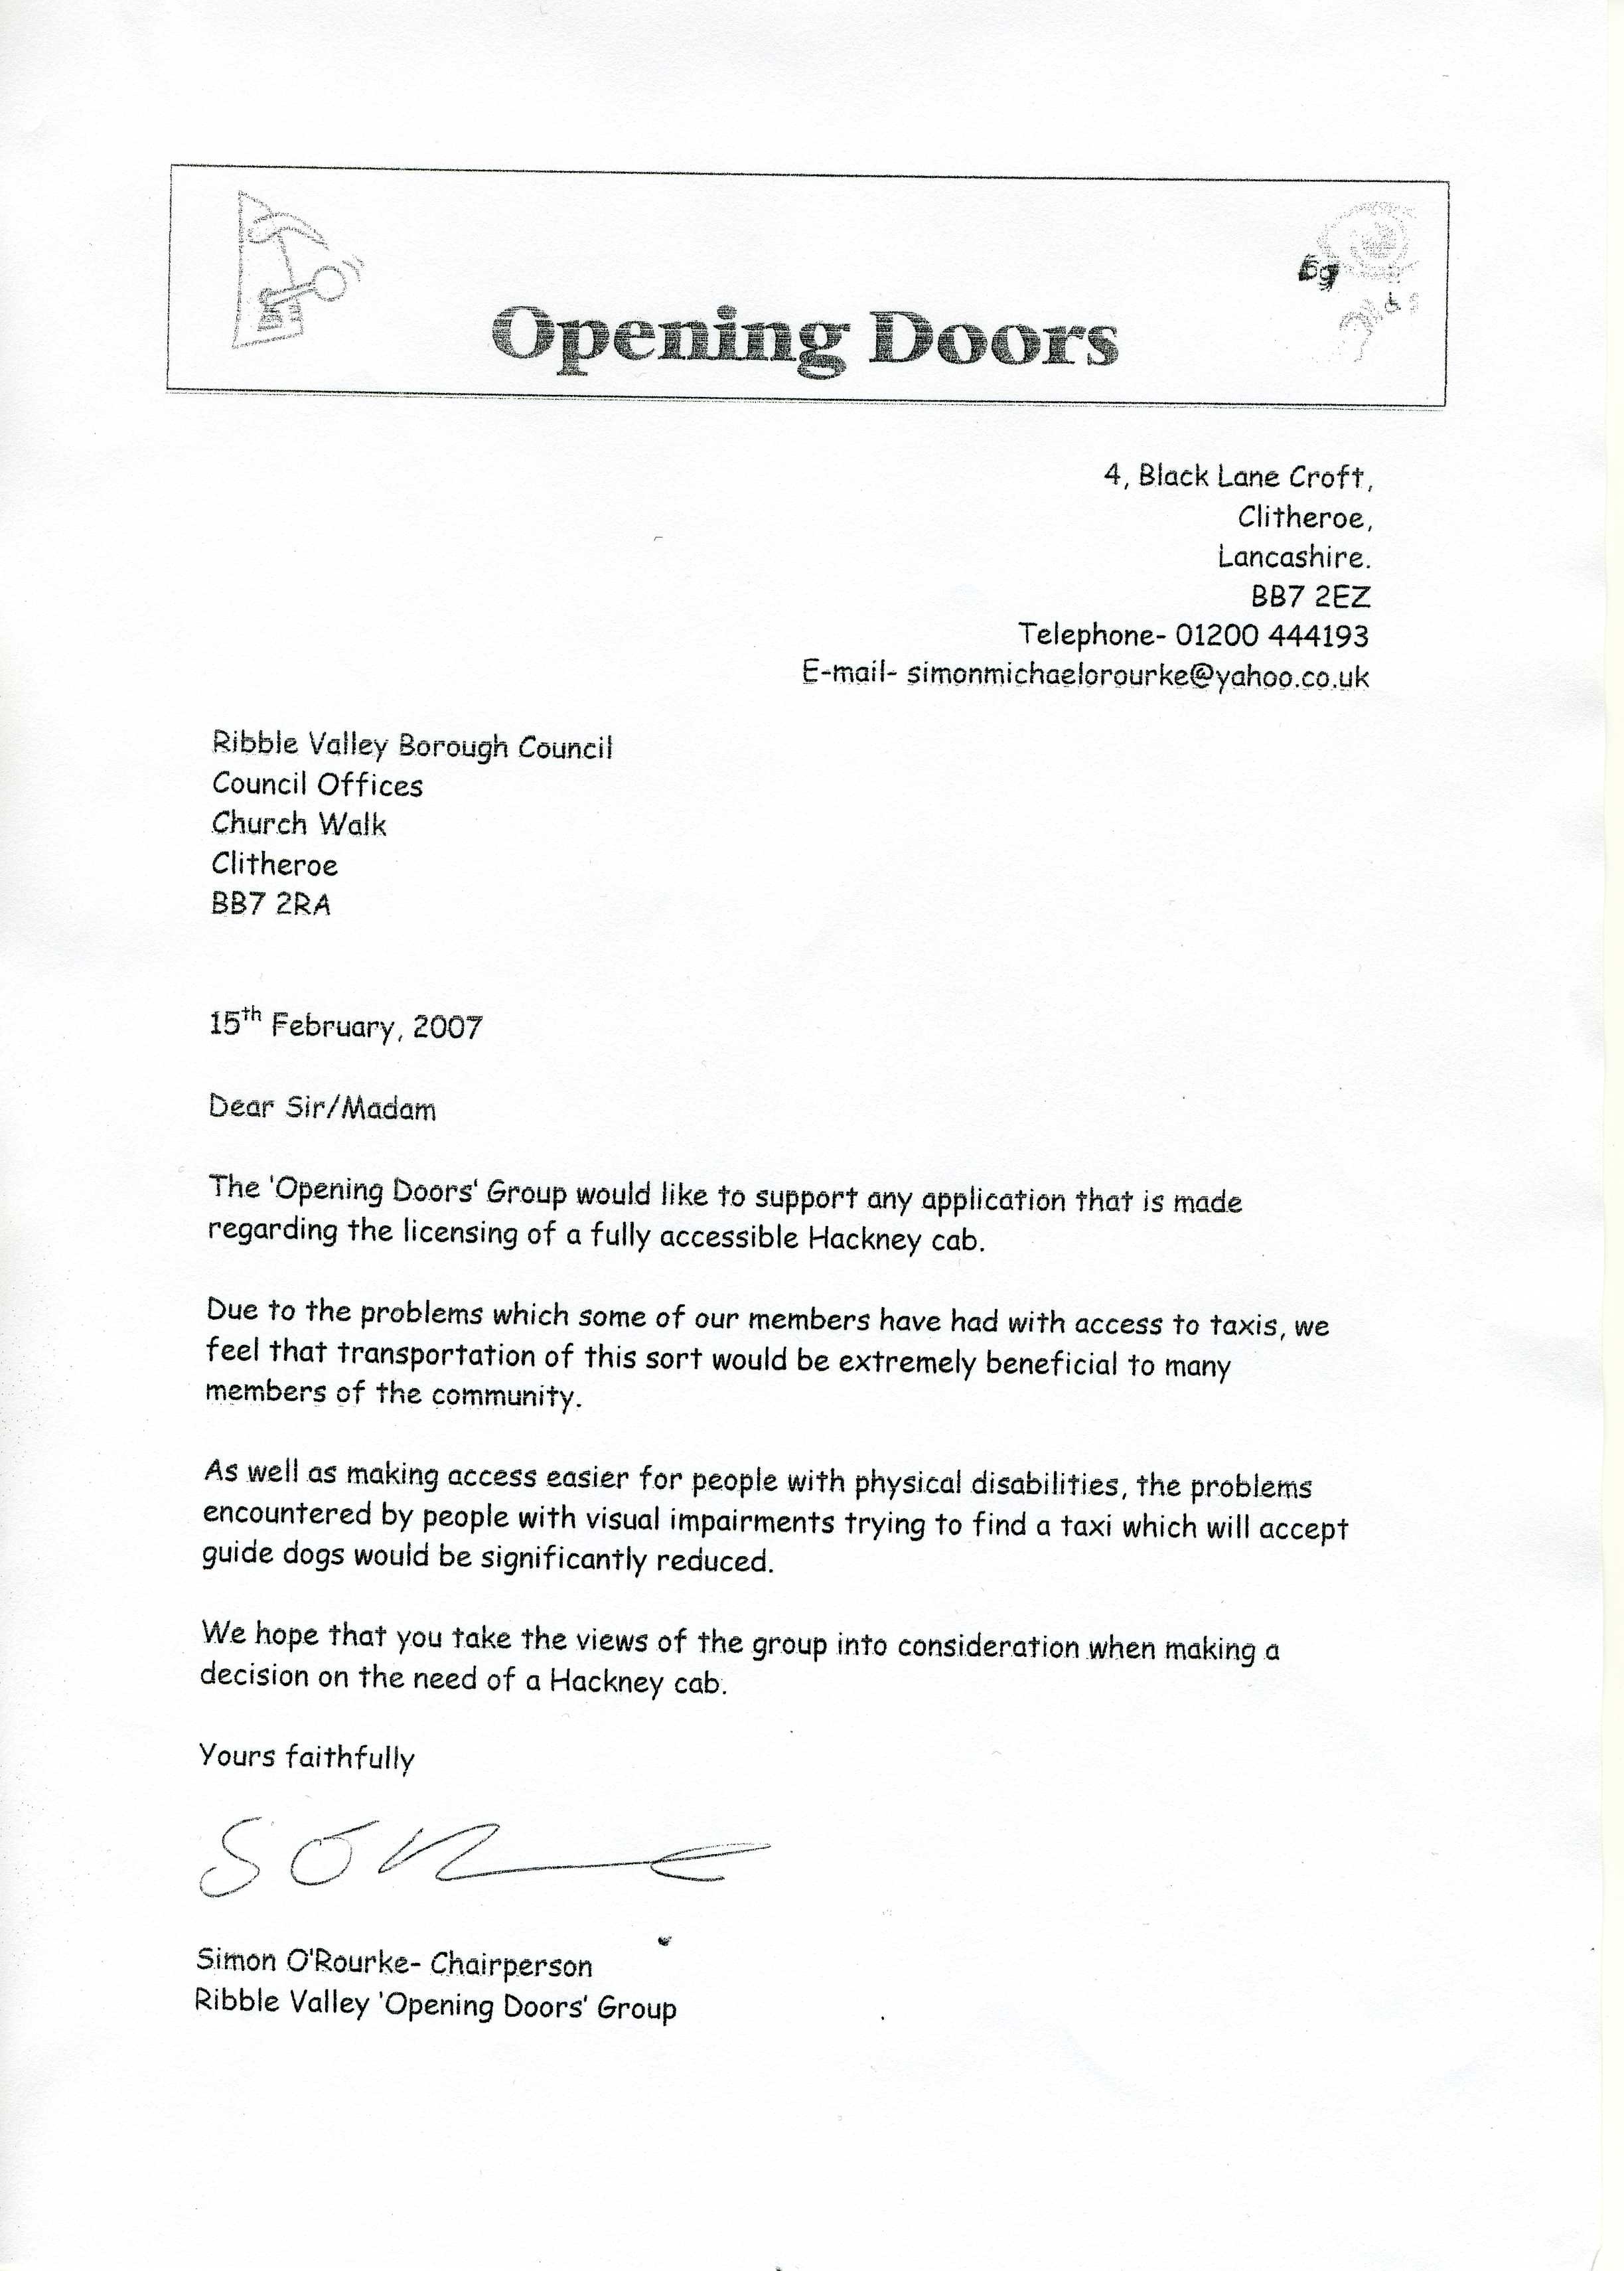 Opening Doors
4, Black Lane Croft,
Clitheroe,
Lancashire.
BB7 2EZ
Telephone- 01200 444193
E-mail- simonmichaelorourke@yahoo.co.uk
Ribble Valley Borough Council
Council Offices
Church Walk
Clitheroe
BB7 2RA
15th February, 2007
Dear Sir/Madam
The 'Opening Doors' Group would like to support any application that is made
regarding the licensing of a fully accessible Hackney cab.
Due to the problems which some of our members have had with access to taxis, we
feel that transportation of this sort would be extremely beneficial to many
members of the community.
As well as making access easier for people with physical disabilities, the problems
encountered by people with visual impairments trying to find a taxi which will accept
guide dogs would be significantly reduced.
We hope that you take the views of the group into consideration when making a
decision on the need of a Hackney cab.
Yours faithfully
Simon O'Rourke- Chairperson
Ribble Valley 'Opening Doors' Group